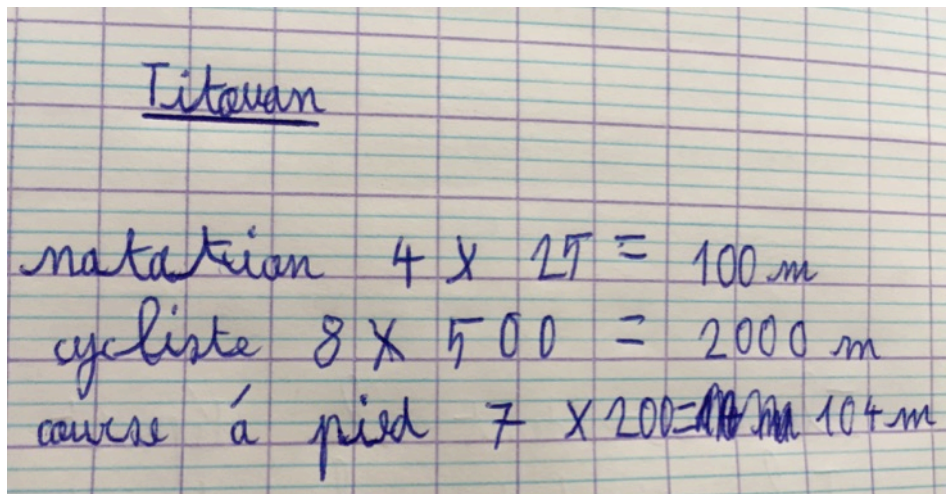 Titouan
natation 4 x 25 = 100 m
cycliste 8 x 500 = 2000 m
course à pied 7 x 200 = 104 m